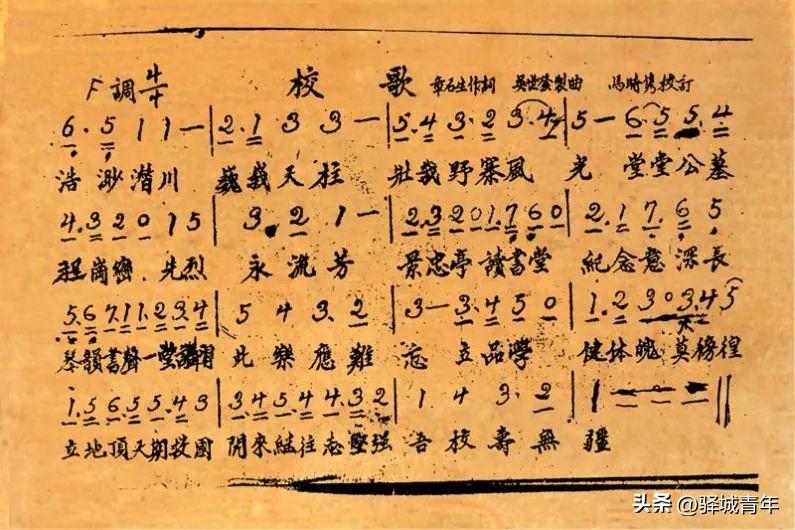 F調 4/4 校歌 章石生作詞 吳世 製曲 馬時雋校訂
6. 5 1 1 — | 2. 1 3 3 — | 5. 4 3. 2 3. 4 | 5 — 6. 5 5. 4
浩渺潛川 巍峩天柱 壯哉野寨風 光 堂堂公墓
4. 3 2 0 1 5 | 3. 2 1 — | 2. 3 2 0 1. 7 6 0 | 2. 1 7. 6 5
崗巒 先烈 永流芳 景忠亭讀書堂 紀念意深長
5. 6 7. 1 1. 2 3. 4 | 5 4 3. 2 | 3 — 3. 4 5 0 | 1. 2 3 0 3. 4 5
琴韻書聲一堂講習 此樂應難 忘 立品學 健体魄 莫徬徨
1. 5 6. 5 5. 4 3 | 3. 4 5. 4 4. 3 2 | 1 4 3. 2 | 1 — — —
立地頂天期救國 開來繼往志堅强 吾校壽無 疆
头条 @驿城青年